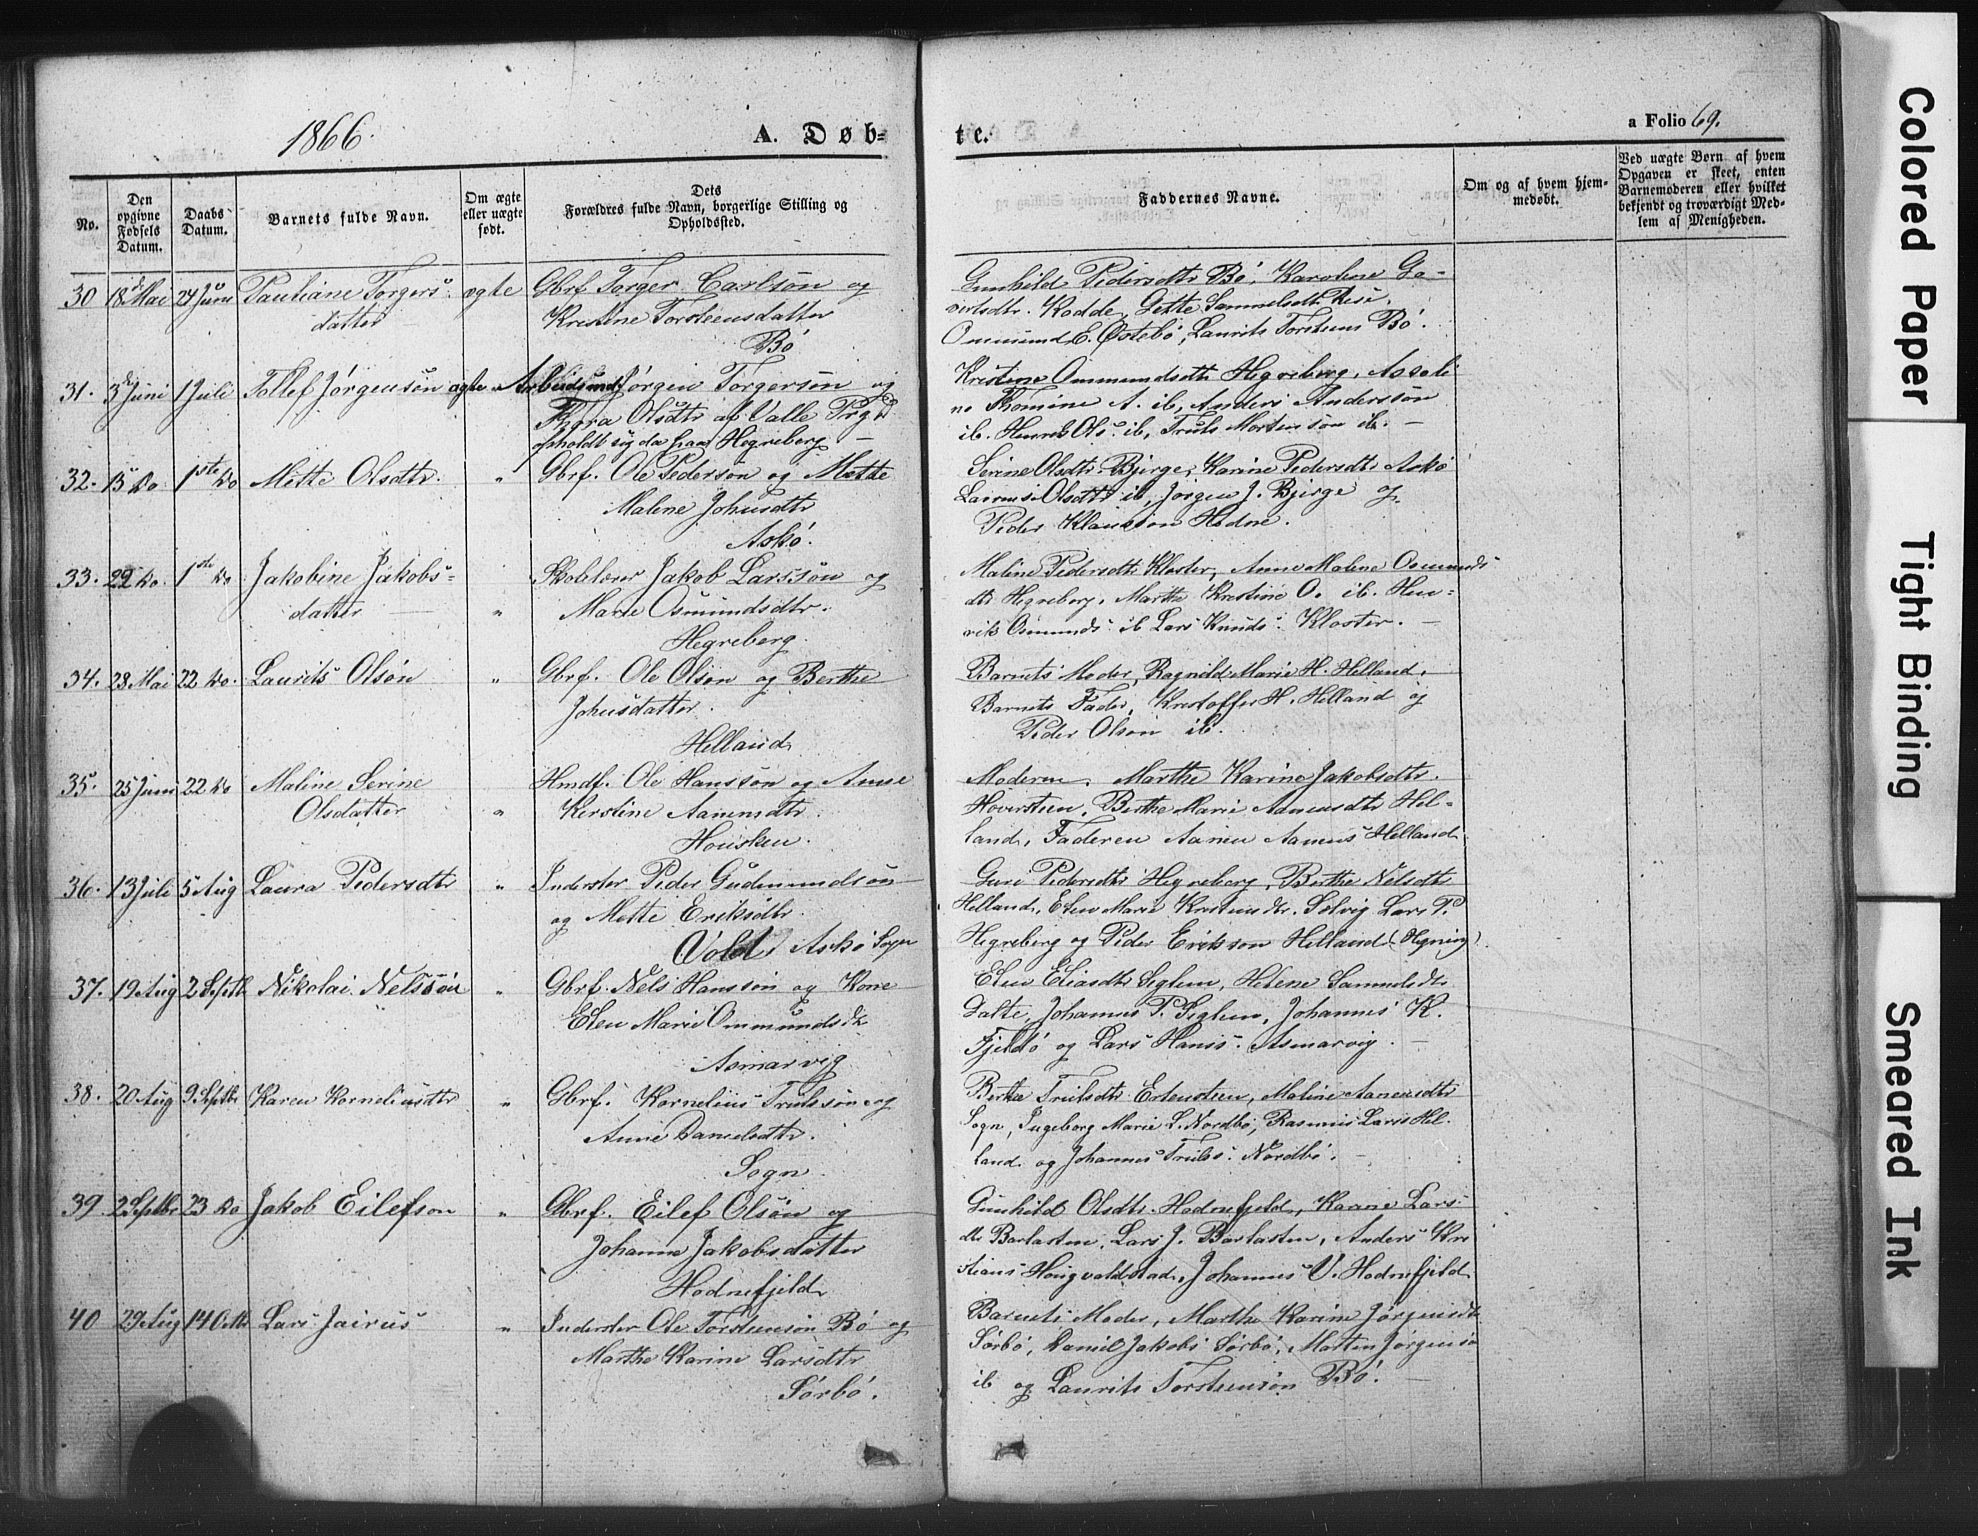 1866.
A. Døb-
te.
a Folio 69.
No.
Den opgivne Fødsels Datum.
Daabs Datum.
Barnets fulde Navn.
Om ægte eller uægte født.
Dets Forældres fulde Navn, borgerlige Stilling og Opholdssted.
Faddernes Navne.
Om og af hvem hjemmedøbt.
Ved uægte Børn af hvem Opgaven er skeet, enten Barnemoderen eller hvilket bekjendt og troværdigt Medlem af Menigheden.
30 18 Mai 24 Juni Pauliane Torgers- ægte Gbrf Torger Carlsøn og
datter Kristine Torsteensdatter
Bø
Gunhild Pedersdtr Bø, Karoline Go-
vertsdtr. Kodde, Gitte Sammelsdtr
Ommund E. Østebø, Laurits Torsteens Bø.
31. 3die Juni 1 Juli Tollef Jørgensøn ægte Arbeidsmd Jørgen Torgersøn og
Thora Olsdtr af Valle Prgd
opholdt sig da paa Hegreberg
Kristine Ommundsdtr Hegreberg, Assali
ne Thomine A. ib, Anders Anderssøn
ib. Henrik Ols. ib, Truls Mortensøn ib.
32. 15 do 1ste do Mette Olsdtr. " Gbrf. Ole Pedersøn og Mette
Malene Johnsdtr
Askø.
Serine Olsdtr Bjerge, Karine Pedersdtr Askø
Olsdtr ib, Jørgen J. Bjerge og
Peder Klaussøn Hodne.
33. 22 do. 1ste do Jakobine Jakobs-
datter " Skolelærer Jakob Larssøn og
Marie Osmundsdtr.
Hegreberg.
Maline Pedersdtr Kloster, Anne Malene Osmunds
dtr Hegreberg, Marthe Kristine O. ib. Hen-
rik Osmunds. ib Lars Knuds. Kloster.
34. 28 Mai 22 do. Laurits Olsøn " Gbrf. Ole Olsøn og Berthe
Johnsdatter.
Helland
Barnets Moder, Ragnild Marie H. Helland,
Barnets Fader, Kristoffer H. Helland og
Peder Olsøn ib.
35. 25 Juni 22 do Maline Serine " Hmdf. Ole Hanssøn og Anne
Olsdatter Kerstine Aanensdtr.
Housken.
Moderen, Marthe Karine Jakobsdtr.
Hoversteen, Berthe Marie Aanensdtr Hel-
land, Faderen Aanen Aanens Helland.
36. 13 Juli 5 Aug Laura Pedersdtr " Inderster Peder Gudmundsøn
og Mette Eriksdtr.
Vold Askø Sogn
Guri Pedersdtr Hegreberg, Berthe Nelsdtr
Helland, Elen Marie Kristensdtr. Solvig Lars P.
Hegreberg og Peder Eriksøn Helland (Hegning)
37. 19 Aug 2 Septb Nikolai Nelssøn " Gbrf. Nels Hanssøn og Kone
Elen Marie Ommundsdtr
Asmarvig
Elen Eliasdtr Siglen, Helene Sammelsdtr
Dalte, Johannes P. Siglen, Johannes K.
Fjeldø og Lars Hans. Asmarvig.
38. 20 Aug 9 Septbr Karen Korneliusdtr " Gbrf. Kornelius Trulssøn og
Anne Danielsdtr.
Sogn.
Berthe Trulsdtr Ertensteen, Maline Aanensdtr
Sogn, Ingeborg Marie L. Nordbø, Rasmus Lars Hel-
land og Johannes Truls. Nordbø.
39. 2 Septbr 23 do Jakob Eilefson " Gbrf. Eilef Olsøn og
Johanna Jakobsdatter
Hodnefjeld
Gunhild Olsdtr. Hodnefjeld, Kaane Lars
dtr Barlasten, Lars J. Barlasten, Anders Kri
stians Hougvaldstad, Johannes V. Hodnefjeld
40 29 Aug 14 Oktb Lars Jairus " Inderster Ole Torsteensøn Bø og
Marthe Karine Larsdtr
Sørbø.
Barnets Moder, Marthe Karine Jørgensdtr
Sørbø, Daniel Jakobs Sørbø, Morten Jørgensøn
ib og Laurits Torsteensøn Bø.
Colored Paper
Tight Binding
Smeared Ink